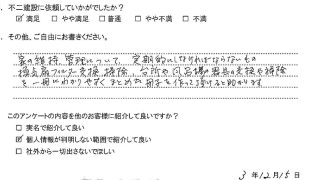 . 不二建設に依頼していかがでしたか？
☑ 満足 ☐ やや満足 ☐ 普通 ☐ やや不満 ☐ 不満
. その他、ご自由にお書きください。
家の維持、管理について、定期的にしなければならないもの
換気扇フィルター交換、掃除、台所や風呂場の器具の交換や掃除
を一冊にわかりやすくまとめた冊子を作って頂けると助かります
このアンケートの内容を他のお客様に紹介して良いですか？
☐ 実名で紹介して良い
☑ 個人情報が判明しない範囲で紹介して良い
☐ 社外から一切出さないでほしい
3 年 12 月 15 日